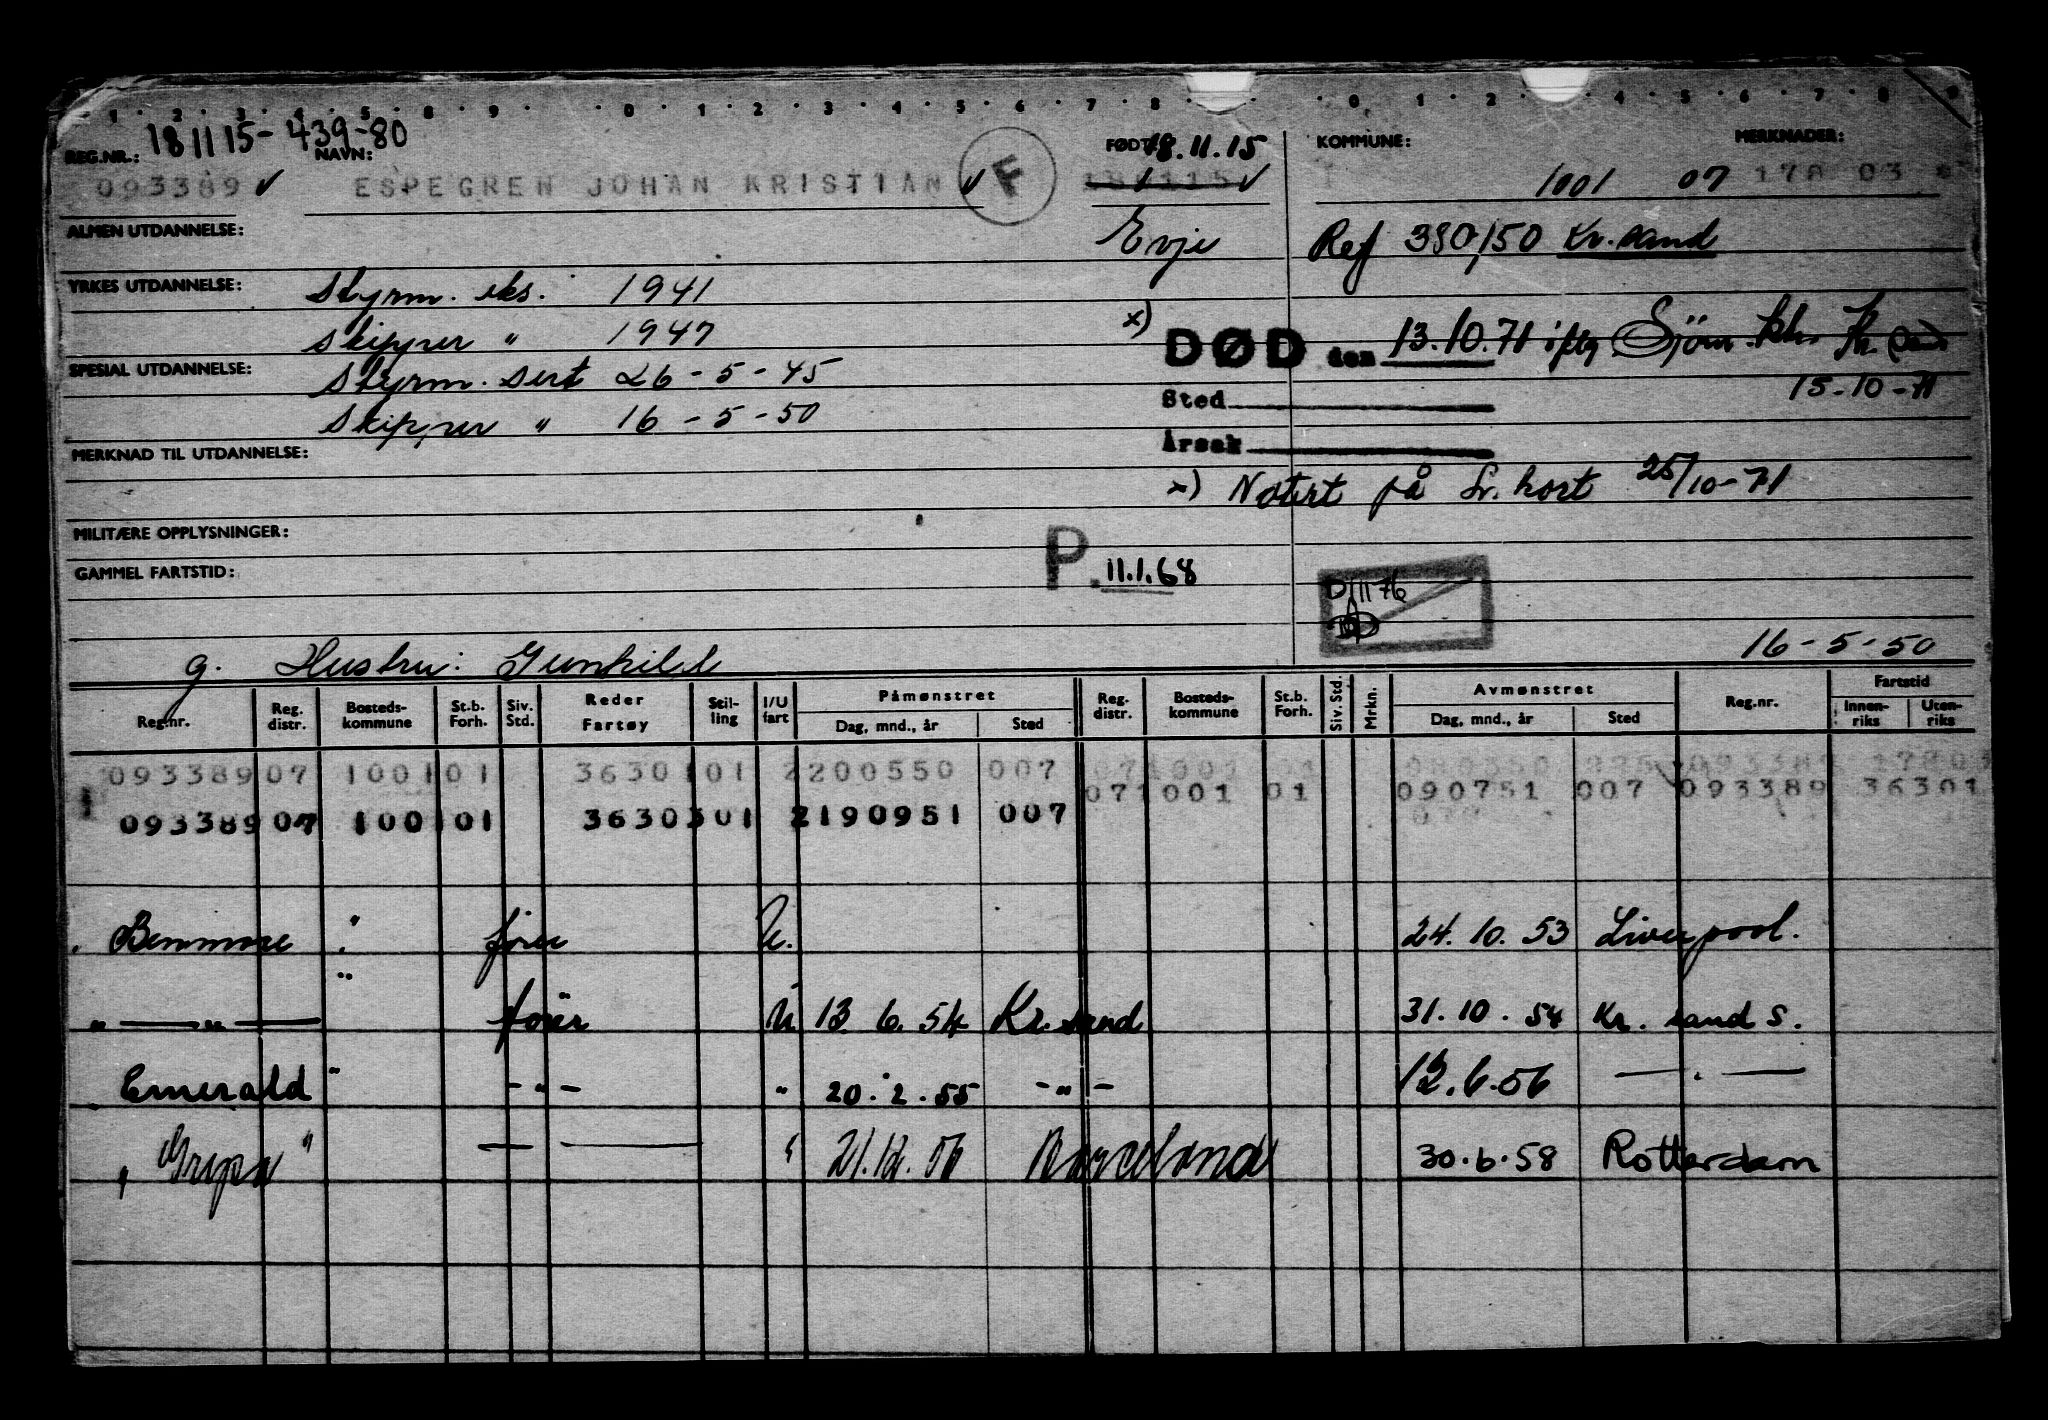 1 2 3 4 5 8 9 0 1 2 3 4 5 6 7 8 0 1 2 4 5 6 7 8 9
181115-439-80
REG.NR.: NAVN: FØDT 18.11.15 KOMMUNE: MERKNADER:
093389 ✓ ESPEGREN JOHAN KRISTIAN ✓ F 181115 ✓ 1001 07 178 03
ALMEN UTDANNELSE: Evje Ref 380/50 Kr.sand
YRKES UTDANNELSE: Styrm. eks. 1941
skipper " 1947 x) DØD den 13.10.71 iflg. Sjöm.
SPESIAL UTDANNELSE: Styrm. sert 26-5-45 Sted 15-10-71
Skipper " 16-5-50 Årsak
MERKNAD TIL UTDANNELSE:
x) Notert på kort 25/10-71
MILITÆRE OPPLYSNINGER:
GAMMEL FARTSTID: P. 11.1.68
D/1176
g. Hustru: Gunhild 16-5-50
Reg.nr. Reg. distr. Bosteds-kommune St.b. Forh. Siv. Std. Reder Fartøy Stil-ling I/U fart Påmønstret Dag, mnd., år Sted Reg. distr. Bosteds-kommune St.b. Forh. Siv. Std. Mrkn. Avmønstret Dag, mnd., år Sted Reg.nr. Fartstid Innen-riks Uten-riks
093389 07 1001 01 3630 101 2 200550 007
071001 01 090751 007 093389 36301
093389 07 1001 01 3630 301 2 190951 007
" Benmore " fører U. 24.10.53 Liverpool.
" — " — " fører U. 13 6. 54 Kr. sand 31.10.54 Kr. sand S.
" Emerald " - " - " 20.2.55 - " - 12.6.56 — " —
" Gripa " — — " 21.12.56 Barcelona 30.6.58 Rotterdam